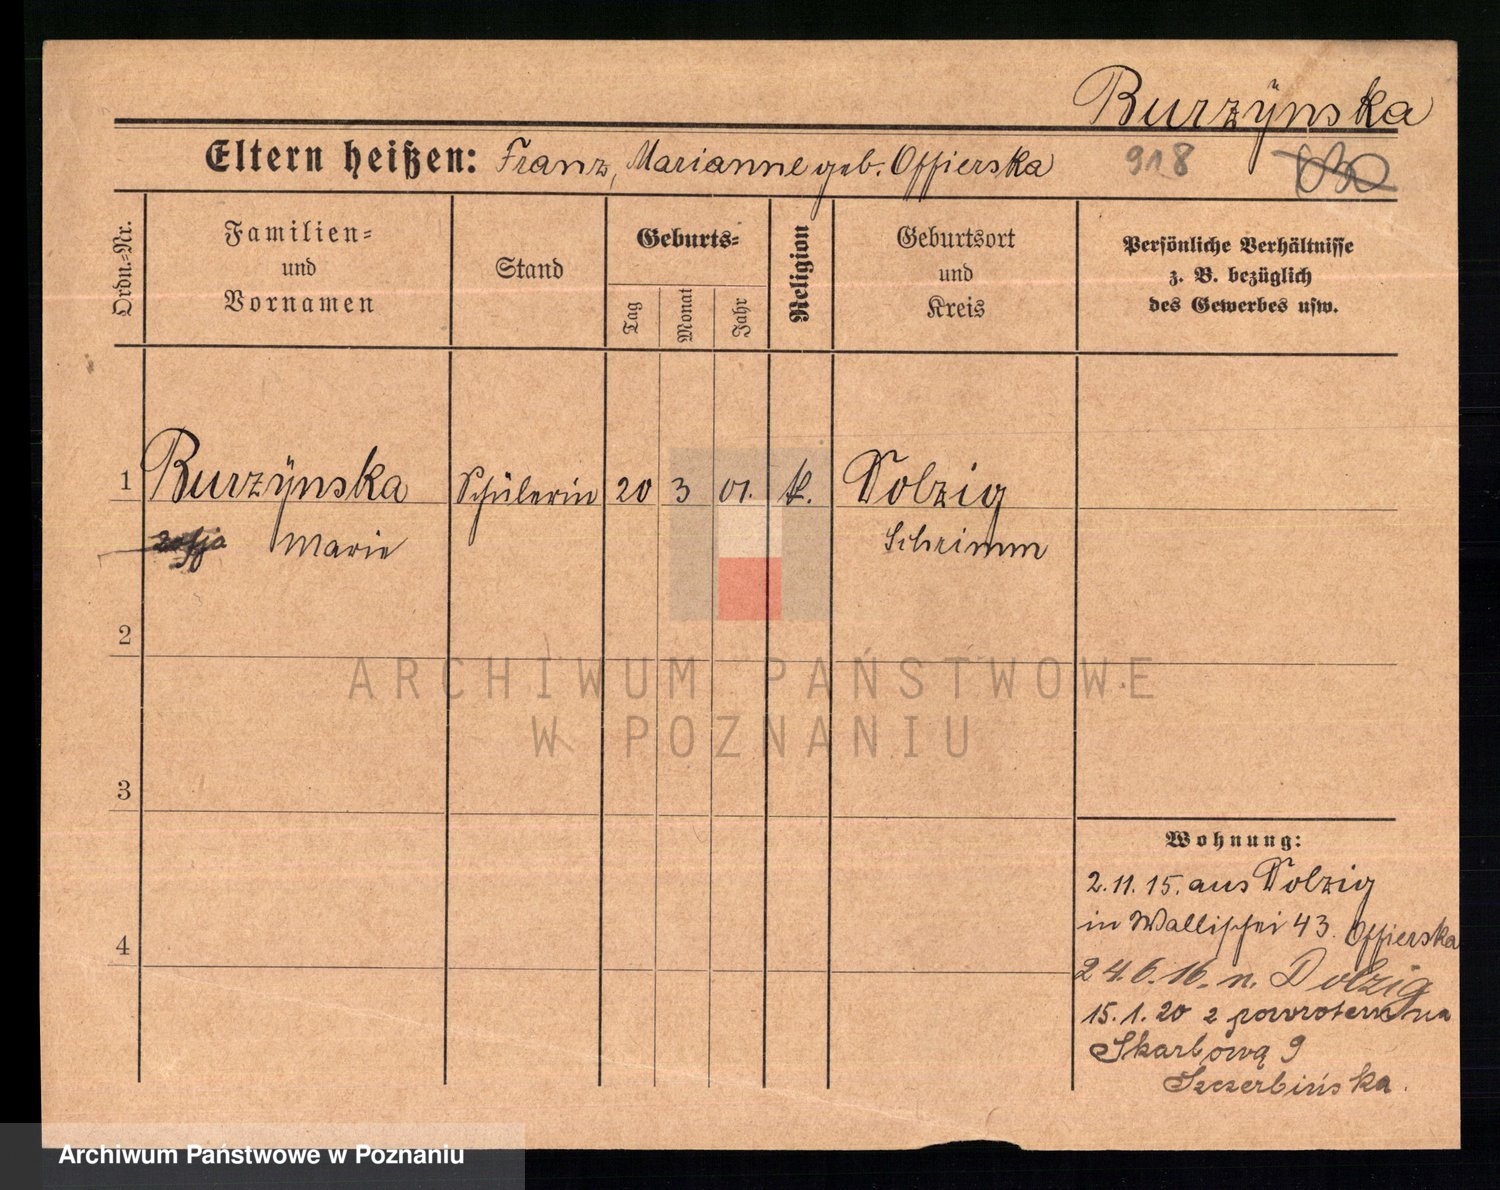 Burzÿnska
Eltern heißen: Franz, Marianne geb. Offierska 918
Ordn.=Nr.
Familien=
und
Vornamen
Stand
Geburts=
Tag
Monat
Jahr
Religion
Geburtsort
und
Kreis
Persönliche Verhältnisse
z. B. bezüglich
des Gewerbes usw.
1 Burzÿnska Schülerin 20 3 01. k. Dolzig
Marie Schrimm
2
ARCHIWUM PAŃSTWOWE
W POZNANIU
3
Wohnung:
2.11.15. aus Dolzig
in Wallischei 43. Offierska
4
24.6.16. n. Dolzig
15.1.20 z powrotem na
Skarbową 9
Szczerbińska.
Archiwum Państwowe w Poznaniu